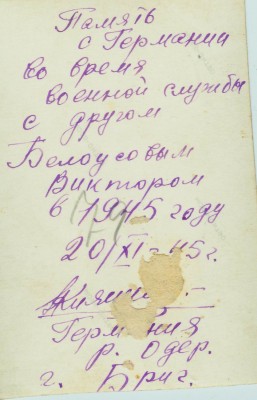 Память
с Германии
во время
военной службы
с другом
Белоусовым
Виктором
в 1945 году
20/XI-45г.
Германия
р. Одер.
г. Бриг.